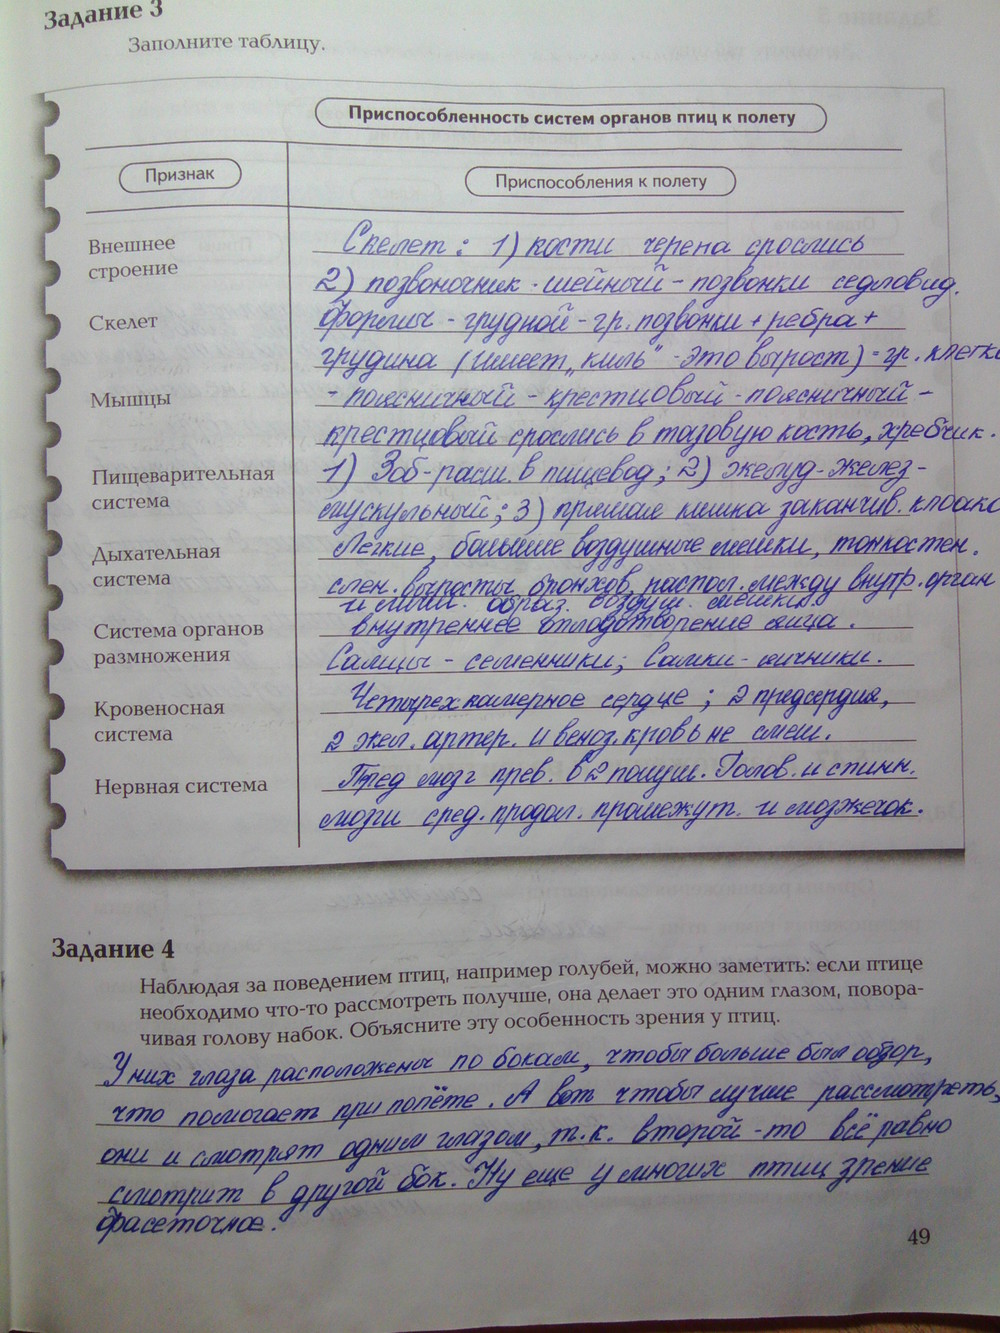 Задание 3
Заполните таблицу.
Приспособленность систем органов птиц к полету
Признак
Приспособления к полету
Внешнее
строение
Скелет
Мышцы
Пищеварительная
система
Дыхательная
система
Система органов
размножения
Кровеносная
система
Нервная система
Скелет: 1) кости черепа срослись
2) позвоночник · шейный - позвонки седловид.
формы - грудной - гр. позвонки + ребра +
грудина (имеет „киль" - это вырост) = гр. клетка
- поясничный - крестцовый - поясничный -
крестцовый срослись в тазовую кость, хребчик.
1) Зоб - расш. в пищевод; 2) желуд - желез -
мускульный; 3) прямая кишка заканчив. клоакой
Легкие, большие воздушные мешки, тонкостен.
слен. выросты бронхов, распол. между внутр. орган
образ. воздуш. мешки
внутреннее оплодотворение яйца.
Самцы - семенники; Самки - яичники.
Четырехкамерное сердце; 2 предсердия,
2 жел. артер. и веноз. кровь не смеш.
Пред мозг прев. в 2 полуш. Голов. и спинн.
мозги сред. продол. промежут. и мозжечок.
Задание 4
Наблюдая за поведением птиц, например голубей, можно заметить: если птице
необходимо что-то рассмотреть получше, она делает это одним глазом, повора-
чивая голову набок. Объясните эту особенность зрения у птиц.
У них глаза расположены по бокам, чтобы больше был обзор,
что помогает при полёте. А вот чтобы лучше рассмотреть,
они и смотрят одним глазом, т.к. второй-то всё равно
смотрит в другой бок. Ну еще у многих птиц зрение
фасеточное.
49